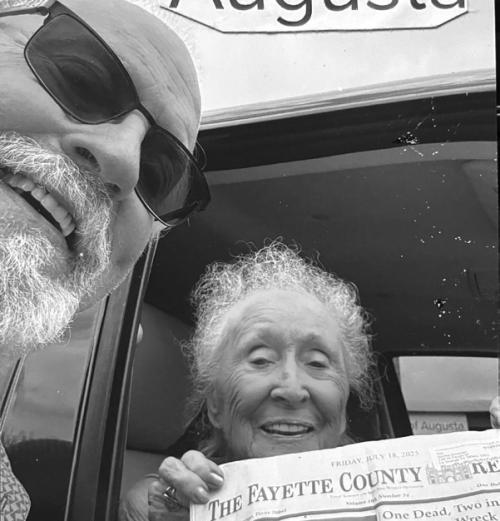 Augusta
of Augusta
FRIDAY, JULY 18, 2025
THE FAYETTE COUNTY
RE
One Dead, Two in
Wreck